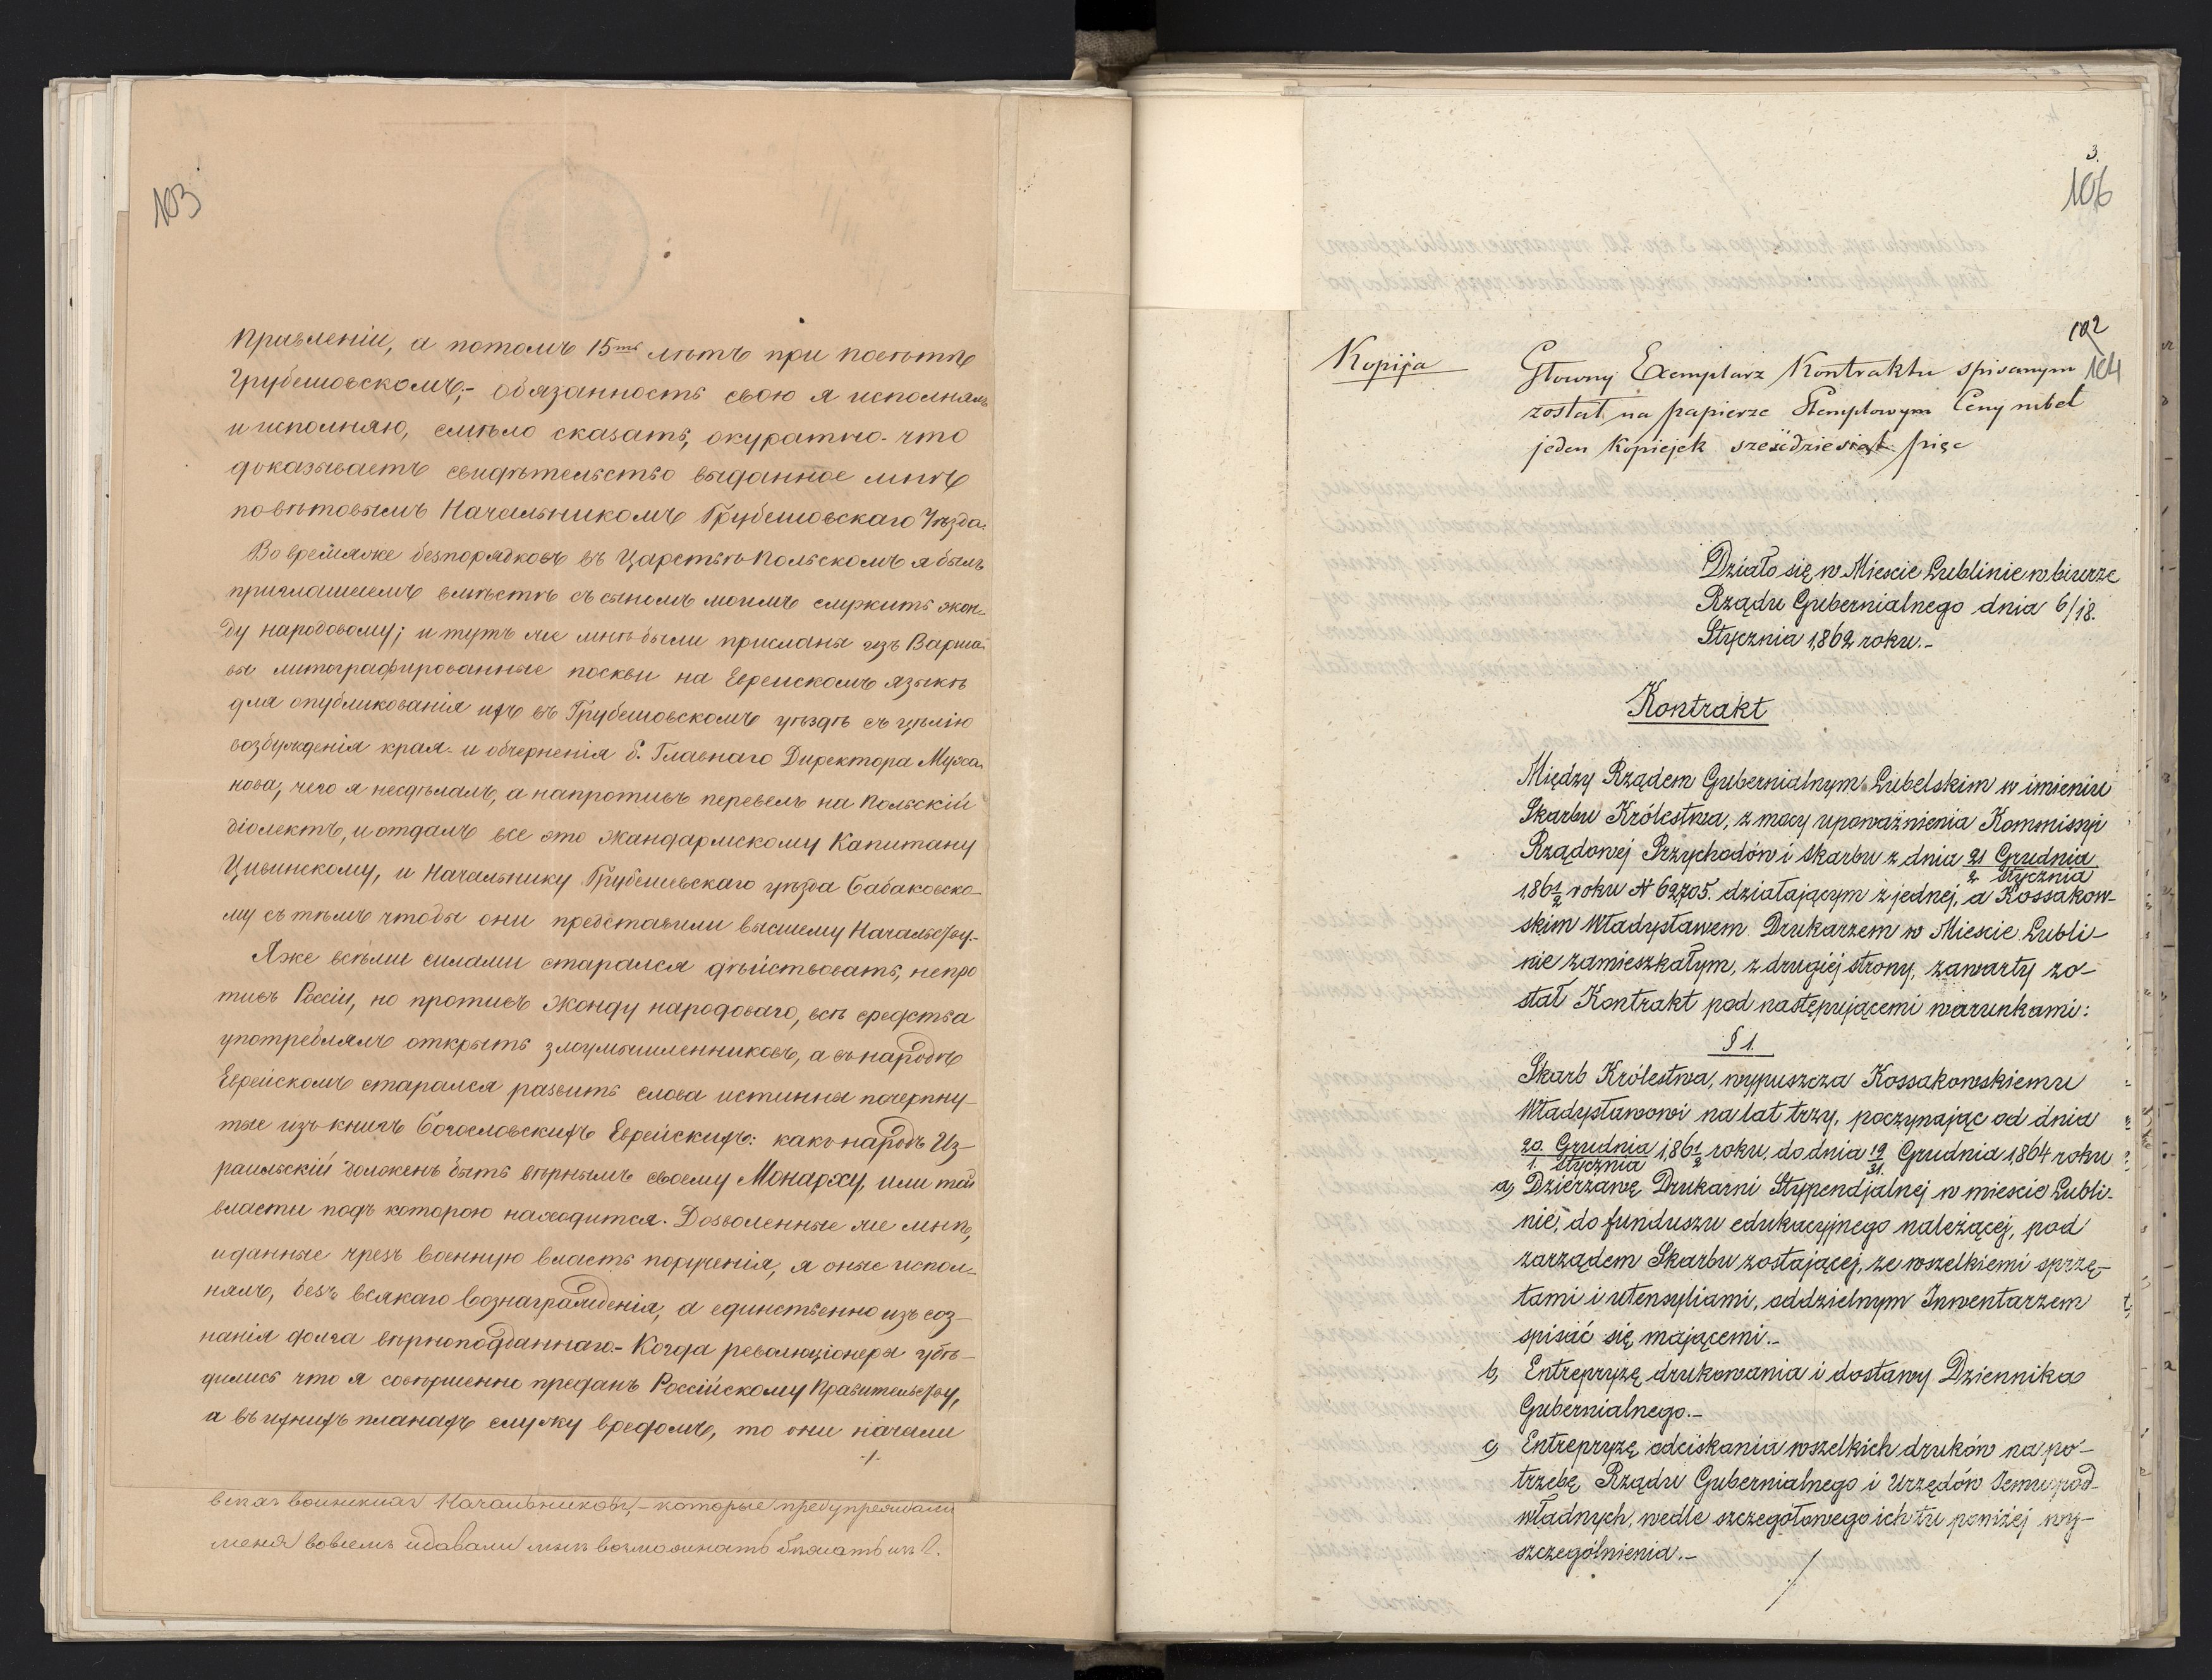 103
правленіи, а потомъ 15ть лѣтъ при повѣтѣ
Грубешовскомъ,- обязанность свою я исполнялъ
и исполняю, смѣло сказать, окуратно- что
доказываетъ свидѣтельство выданное мнѣ
повѣтовымъ Начальникомъ Грубешовскаго Уѣзда.
Во время же безпорядковъ въ Царствѣ Польскомъ я былъ
приглашаемъ вмѣстѣ съ сыномъ моимъ служить жон-
ду народовому; и тутъ же мнѣ были присланы изъ Варша-
вы литографированные на Еврейскомъ языкѣ
для опубликованія ихъ въ Грубешовскомъ уѣздѣ съ цѣлію
возбужденія края- и обчерненія б. Главнаго Директора Муха-
нова, чего я несдѣлалъ, а напротивъ перевелъ на Польскій
діолектъ, и отдалъ все это Жандармскому Капитану
Цивинскому, и Начальнику Грубешевскаго уѣзда Бабаковско-
му съ тѣмъ чтобы они представили высшему Начальству.-
Я же всѣми силами старался дѣйствовать, непро
тивъ Россіи, но противъ Жонду народоваго, всѣ средства
употреблялъ открыть злоумышленниковъ, а въ народѣ
Еврейскомъ старался развить слова истинны почерпну-
тые изъ книгъ Богословскихъ Еврейскихъ: какъ народъ Из-
раильскій долженъ быть вѣрнымъ своему Монарху, или той
власти подъ которою находится. Дозволенные же мнѣ,
и данные чрезъ военную власть порученія, я оные испол-
нялъ, безъ всякаго вознагражденія, а единственно изъ соз-
нанія долга вѣрноподданнаго.- Когда революціонеры убѣ-
дились что я совершенно преданъ Россійскому Правительству,
а въ ихнихъ планахъ служу вредомъ, то они начали
-/-
всѣхъ воинскихъ Начальниковъ,- которые предупреждали
меня вовсемъ и давали мнѣ возможность бѣжать изъ
3.
106
102
104
Kopija
Głowny Exemplarz Kontraktu spisanym
został na papierze Stemplowym Ceny rubel
jeden Kopiejek sześćdziesiąt pięc
Działo się w Mieście Lublinie w biurze
Rządu Gubernialnego dnia 6/18.
Stycznia 1862 roku.-
Kontrakt
Między Rządem Gubernialnym Lubelskim w imieniu
Skarbu Królestwa, z mocy upoważnienia Kommissyi
Rządowej Przychodów i Skarbu z dnia 21 Grudnia
2 Stycznia
1861/2 roku № 62,705. działającym z jednej, a Kossakow-
skim Władysławem Drukarzem w Mieście Lubli-
nie zamieszkałym, z drugiej strony, zawarty zo-
stał Kontrakt pod następującemi warunkami:
§ 1.
Skarb Królestwa, wypuszcza Kossakowskiemu
Władysławowi na lat trzy, poczynając od dnia
20. Grudnia / 1. Stycznia 1861/2 roku, do dnia 19/31. Grudnia 1864 roku
a, Dzierżawę Drukarni Stypendjalnej w mieście Lubli-
nie, do funduszu edukacyjnego należącej, pod
zarządem Skarbu zostającej, ze wszelkiemi sprzę-
tami i utensyliami, oddzielnym Inwentarzem
spisać się mającemi.-
b, Entrepryzę drukowania i dostawy Dziennika
Gubernialnego.-
c, Entrepryzę odciskania wszelkich druków na po-
trzebę Rządu Gubernialnego i Urzędów Jemu pod-
władnych, wedle szczegółowego ich tu poniżej wy-
szczególnienia.-